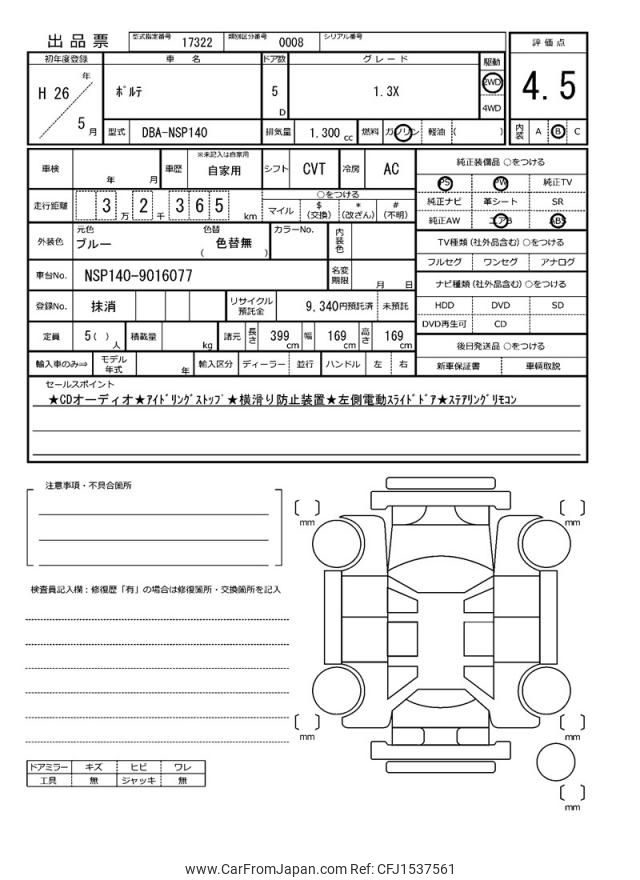 出品票 型式指定番号 17322 類別区分番号 0008 シリアル番号
評価点
4.5
内装 A B C
初年度登録 車名 ドア数 グレード 駆動
H 26 年 ポルテ 5 D 1.3X 2WD
5 月 4WD
型式 DBA-NSP140 排気量 1,300 cc 燃料 ガソリン 軽油 ( )
車検 年 月 車歴 ※未記入は自家用 自家用 シフト CVT 冷房 AC
走行距離 3 万 2 千 3 6 5 km
○をつける
マイル $(交換) *(改ざん) #(不明)
外装色 元色 ブルー 色替 色替無 ( ) カラーNo. 内装色
車台No. NSP140-9016077 名変期限 月 日
登録No. 抹消 リサイクル預託金 9,340円預託済 未預託
定員 5( ) 人 積載量 kg 諸元 長さ 399 cm 幅 169 cm 高さ 169 cm
輸入車のみ⇒ モデル年式 年 輸入区分 ディーラー 並行 ハンドル 左 右
純正装備品 ○をつける
PS PW 純正TV
純正ナビ 革シート SR
純正AW エアB ABS
TV種類 (社外品含む) ○をつける
フルセグ ワンセグ アナログ
ナビ種類 (社外品含む) ○をつける
HDD DVD SD
DVD再生可 CD
後日発送品 ○をつける
新車保証書 車輌取説
セールスポイント
★CDオーディオ★ｱｲﾄﾞﾘﾝｸﾞｽﾄｯﾌﾟ★横滑り防止装置★左側電動ｽﾗｲﾄﾞﾄﾞｱ★ｽﾃｱﾘﾝｸﾞﾘﾓｺﾝ
注意事項・不具合箇所
検査員記入欄：修復歴「有」の場合は修復箇所・交換箇所を記入
[ ] mm
[ ] mm
[ ] mm
[ ] mm
[ ] mm
ドアミラー キズ ヒビ ワレ
工具 無 ジャッキ 無
www.CarFromJapan.com Ref: CFJ1537561